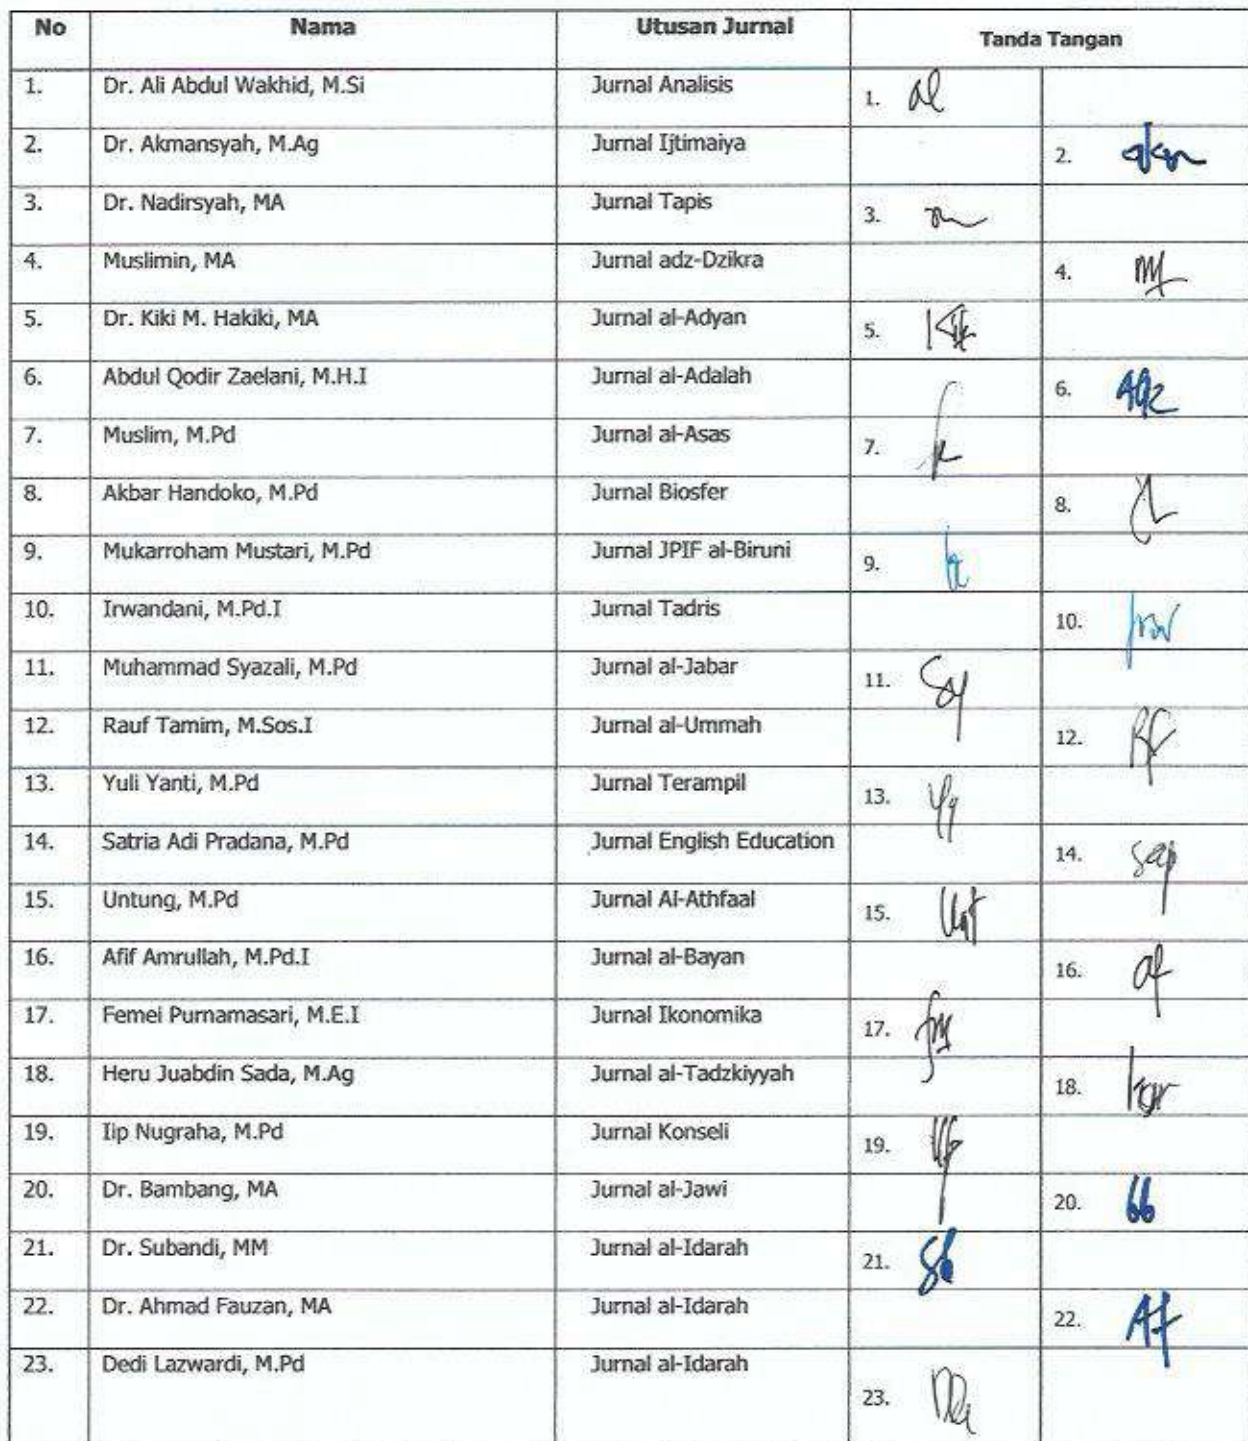 No Nama Utusan Jurnal Tanda Tangan
1. Dr. Ali Abdul Wakhid, M.Si Jurnal Analisis 1.
2. Dr. Akmansyah, M.Ag Jurnal Ijtimaiya 2.
3. Dr. Nadirsyah, MA Jurnal Tapis 3.
4. Muslimin, MA Jurnal adz-Dzikra 4.
5. Dr. Kiki M. Hakiki, MA Jurnal al-Adyan 5.
6. Abdul Qodir Zaelani, M.H.I Jurnal al-Adalah 6.
7. Muslim, M.Pd Jurnal al-Asas 7.
8. Akbar Handoko, M.Pd Jurnal Biosfer 8.
9. Mukarroham Mustari, M.Pd Jurnal JPIF al-Biruni 9.
10. Irwandani, M.Pd.I Jurnal Tadris 10.
11. Muhammad Syazali, M.Pd Jurnal al-Jabar 11.
12. Rauf Tamim, M.Sos.I Jurnal al-Ummah 12.
13. Yuli Yanti, M.Pd Jurnal Terampil 13.
14. Satria Adi Pradana, M.Pd Jurnal English Education 14.
15. Untung, M.Pd Jurnal Al-Athfaal 15.
16. Afif Amrullah, M.Pd.I Jurnal al-Bayan 16.
17. Femei Purnamasari, M.E.I Jurnal Ikonomika 17.
18. Heru Juabdin Sada, M.Ag Jurnal al-Tadzkiyyah 18.
19. Iip Nugraha, M.Pd Jurnal Konseli 19.
20. Dr. Bambang, MA Jurnal al-Jawi 20.
21. Dr. Subandi, MM Jurnal al-Idarah 21.
22. Dr. Ahmad Fauzan, MA Jurnal al-Idarah 22.
23. Dedi Lazwardi, M.Pd Jurnal al-Idarah 23.